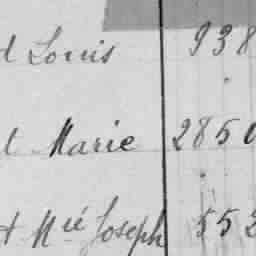 d Louis 938
d Marie 2850
t Mié Joseph 552